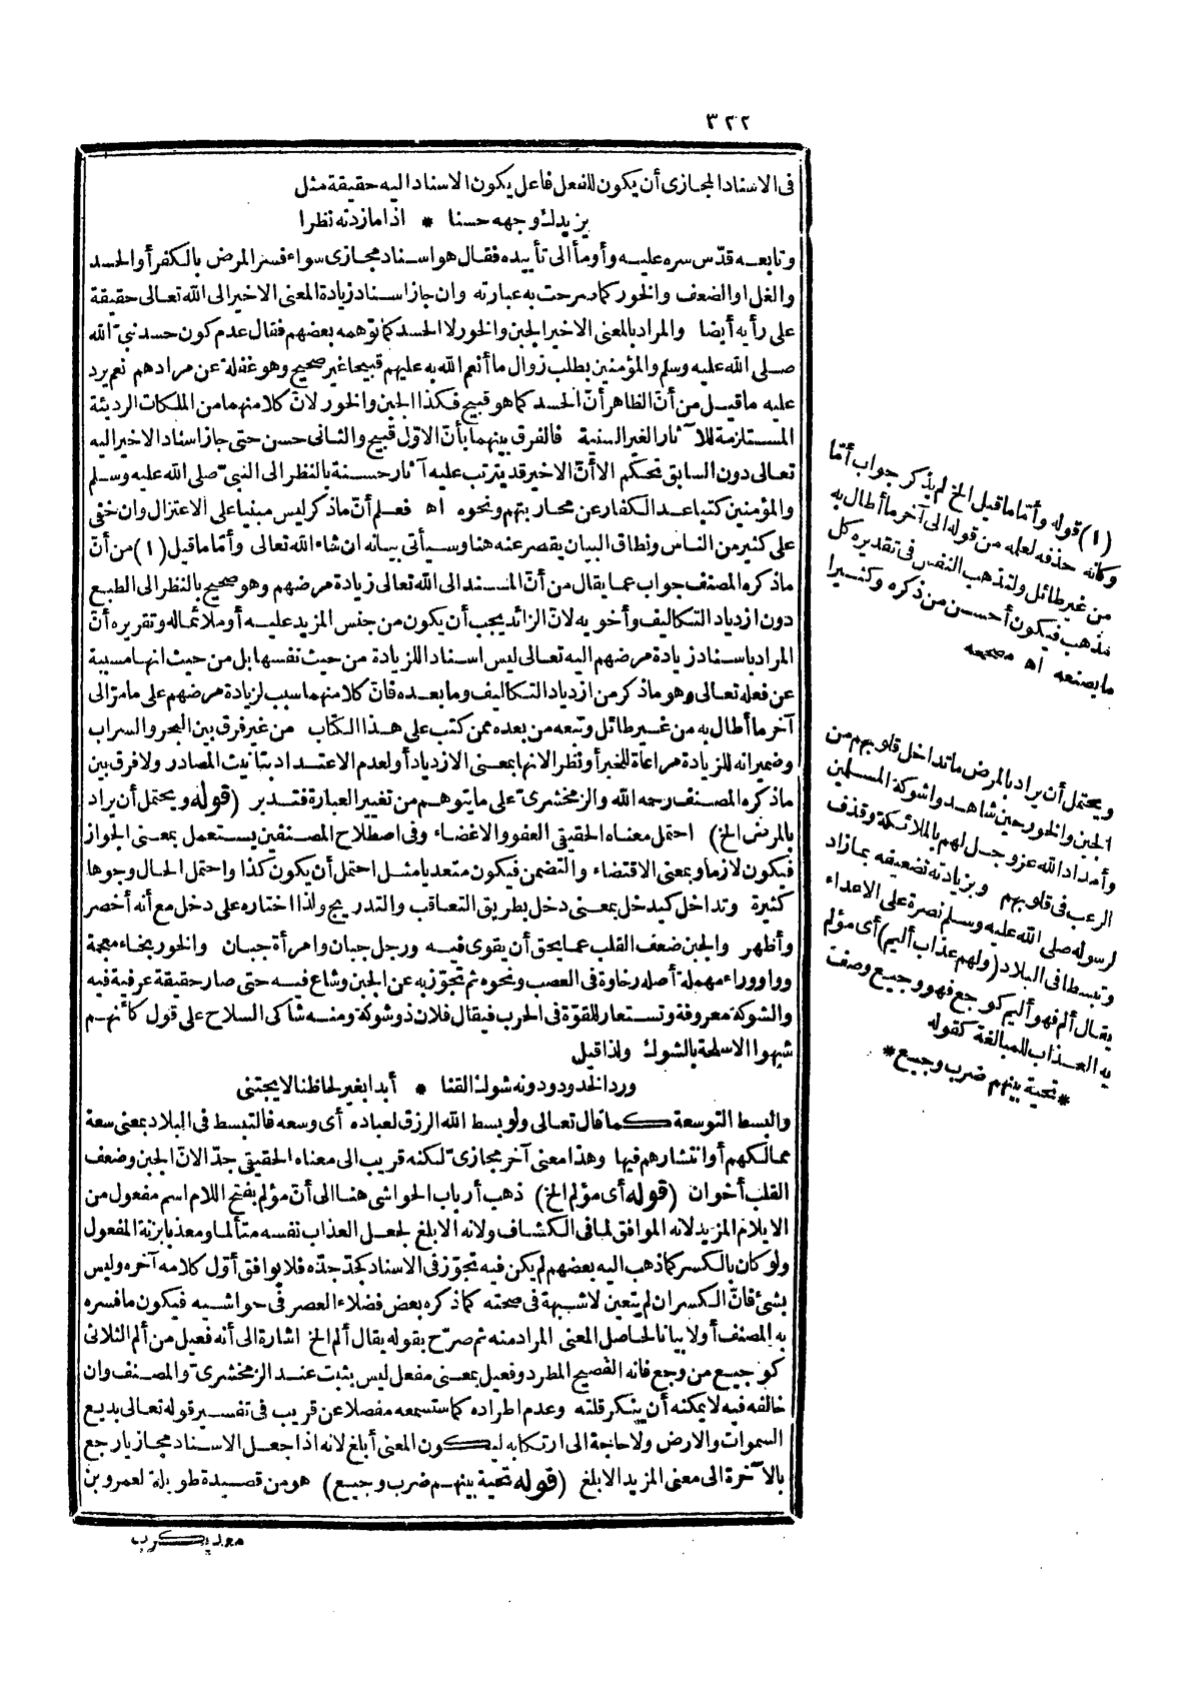 ٣٢٢
فى الاسناد المجازى أن يكون للفعل فاعل يكون الاسناد اليه حقيقة مثل
يزيدك وجهه حسنا * اذا ما زدته نظرا
وتابعه قدّس سره عليه وأومأ الى تأييده فقال هو اسناد مجازى سواء فسر المرض بالكفر أو الحسد
والغل او الضعف والخور كما صرحت به عبارته وان جاز اسناد زيادة المعنى الاخير الى الله تعالى حقيقة
على رأيه أيضا والمراد بالمعنى الاخير الجبن والخور لا الحسد كما توهمه بعضهم فقال عدم كون حسد نبىّ الله
صلى الله عليه وسلم والمؤمنين بطلب زوال ما أنعم الله به عليهم قبيحا غير صحيح وهو غفلة عن مرادهم نعم يرد
عليه ما قيل من أنّ الظاهر أنّ الحسد كما هو قبيح فكذا الجبن والخور لانّ كلا منهما من الملكات الرديئة
المستلزمة للآثار الغير السنية فالفرق بينهما بأنّ الاوّل قبيح والثانى حسن حتى جاز اسناد الاخير اليه
تعالى دون السابق تحكّم الا أنّ الاخير قد يترتب عليه آثار حسنة بالنظر الى النبىّ صلى الله عليه وسلم
والمؤمنين كتباعد الكفار عن محاربتهم ونحوه اه فعلم أنّ ما ذكر ليس مبنيا على الاعتزال وان خفى
على كثير من الناس ونطاق البيان يقصر عنه هنا وسيأتى بيانه ان شاء الله تعالى وأمّا ما قيل (١) من أنّ
ما ذكره المصنف جواب عما يقال من أنّ المسند الى الله تعالى زيادة مرضهم وهو صحيح بالنظر الى الطبع
دون ازدياد التكاليف وأخويه لانّ الزائد يجب أن يكون من جنس المزيد عليه أو ملائما له وتقريره أنّ
المراد باسناد زيادة مرضهم اليه تعالى ليس اسناد الزيادة من حيث نفسها بل من حيث انها مسببة
عن فعله تعالى وهو ما ذكر من ازدياد التكاليف وما بعده فانّ كلا منهما سبب لزيادة مرضهم على ما مرّ الى
آخر ما أطال به من غير طائل وتبعه من بعده ممن كتب على هذا الكتاب من غير فرق بين البحر والسراب
وضمير انه للزيادة مراعاة للخبر أو نظرا لانها بمعنى الازدياد أو لعدم الاعتداد بتأنيث المصادر ولا فرق بين
ما ذكره المصنف رحمه الله والزمخشرىّ على ما يتوهم من تغيير العبارة فتدبر (قوله ويحتمل أن يراد
بالمرض الخ) احتمل معناه الحقيقى العفو والاغضاء وفى اصطلاح المصنفين يستعمل بمعنى الجواز
فيكون لازما وبمعنى الاقتضاء والتضمن فيكون متعديا مثل احتمل أن يكون كذا واحتمل الحال وجوها
كثيرة وتداخل كيدخل بمعنى دخل بطريق التعاقب والتدريج ولذا اختاره على دخل مع أنه أخصر
وأظهر والجبن ضعف القلب عما يحق أن يقوى فيه ورجل جبان وامرأة جبان والخور بخاء معجمة
وواو وراء مهملة أصله رخاوة فى العصب ونحوه ثم تجوّز به عن الجبن وشاع فيه حتى صار حقيقة عرفية فيه
والشوكة معروفة وتستعار للقوّة فى الحرب فيقال فلان ذو شوكة ومنه شاكى السلاح على قول كأنهم
شبهوا الاسلحة بالشوك ولذا قيل
ورد الخدود ودونه شوك القنا * أبدا بغير لحاظنا لا يجتنى
والبسط التوسعة كما قال تعالى ولو بسط الله الرزق لعباده أى وسعه فالتبسط فى البلاد بمعنى سعة
ممالكهم أو انتشارهم فيها وهذا معنى آخر مجازىّ لكنه قريب الى معناه الحقيقى جدّا لانّ الجبن وضعف
القلب أخوان (قوله أى مؤلم الخ) ذهب أرباب الحواشى هنا الى أنّ مؤلم بفتح اللام اسم مفعول من
الايلام المزيد لانه الموافق لما فى الكشاف ولانه الابلغ لجعل العذاب نفسه متألما ومعذبا بزنة المفعول
ولو كان بالكسر كما ذهب اليه بعضهم لم يكن فيه تجوّز فى الاسناد كجدّ جدّه فلا يوافق أوّل كلامه آخره وليس
بشئ فانّ الكسر ان لم يتعين لا شبهة فى صحته كما ذكره بعض فضلاء العصر فى حواشيه فيكون ما فسره
به المصنف أولا بيانا لحاصل المعنى المراد منه ثم صرّح بقوله يقال ألم الخ اشارة الى أنه فعيل من ألم الثلاثى
كوجيع من وجع فانه الفصيح المطرد وفعيل بمعنى مفعل ليس بثبت عند الزمخشرىّ والمصنف وان
خالفه فيه لا يمكنه أن ينكر قلته وعدم اطراده كما ستسمعه مفصلا عن قريب فى تفسير قوله تعالى بديع
السموات والارض ولا حاجة الى ارتكابه ليكون المعنى أبلغ لانه اذا جعل الاسناد مجازيا رجع
بالآخرة الى معنى المزيد الابلغ (قوله تحية بينهم ضرب وجيع) هو من قصيدة طويلة لعمرو بن
معديكرب
(١) قوله وأمّا ما قيل الخ لم يذكر جواب أمّا
وكأنه حذفه لعلمه من قوله الى آخر ما أطال به
من غير طائل ولتذهب النفس فى تقديره كل
مذهب فيكون أحسن من ذكره وكثيرا
ما يصنعه اه مصححه
ويحتمل أن يراد بالمرض ما تداخل قلوبهم من
الجبن والخور حين شاهدوا شوكة المسلمين
وأمداد الله عز وجل لهم بالملائكة وقذف
الرعب فى قلوبهم وبزيادته تضعيفه بما زاد
لرسوله صلى الله عليه وسلم نصرة على الاعداء
وتبسطا فى البلاد (ولهم عذاب أليم) أى مؤلم
يقال ألم فهو أليم كوجع فهو وجيع وصف
به العذاب للمبالغة كقوله
* تحية بينهم ضرب وجيع *